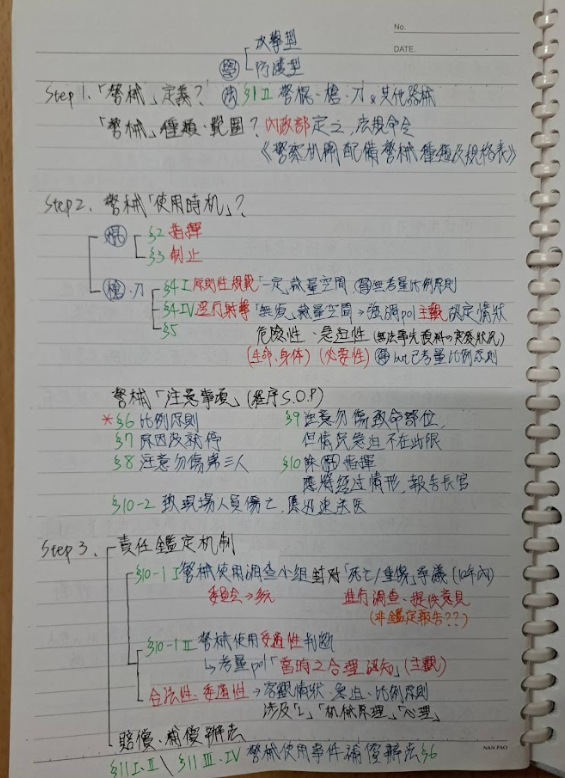 No.
DATE.
攻擊型
學 防護型
Step 1.「警械」定義? 法 §1 II 警棍、槍、刀 & 其他器械
「警械」種類、範圍? 內政部定之, 法規命令
《警察机關配備警械種類及規格表》
Step 2. 警械「使用時机」?
棍 §2 指揮
§3 制止
槍、刀 §4 I 原則性規範「一定」裁量空間 考量比例原則
§4 IV 逕行射擊「無庸」裁量空間 → 強調pol主觀 認定情狀
§5 危險性、急迫性 (無法事先預料の突發狀況)
(生命、身体) (必要性) but已考量比例原則
警械「注意事項」(程序S.O.P)
* §6 比例原則 §9 注意勿傷致命部位,
§7 原因及暫停 但情況急迫不在此限
§8 注意勿傷第三人 §10 指揮
應將經过情形, 報告長官
§10-2 致現場人員傷亡, 應迅速求医
Step 3. 責任鑑定机制
§10-1 I 警械使用調查小組 針对「死亡/重傷」爭議
委員会 進行調查、提供意見
(非鑑定報告??)
§10-1 II 警械使用妥適性判斷
↳ 考量pol「當時之合理認知」(主觀)
合法性、妥適性 → 客觀情狀、急迫、比例原則
涉及「机械原理」「心理」
賠償、補償辦法
§11 I、II \ §11 III、IV 警械使用事件補償辦法 §6
NAN PAO